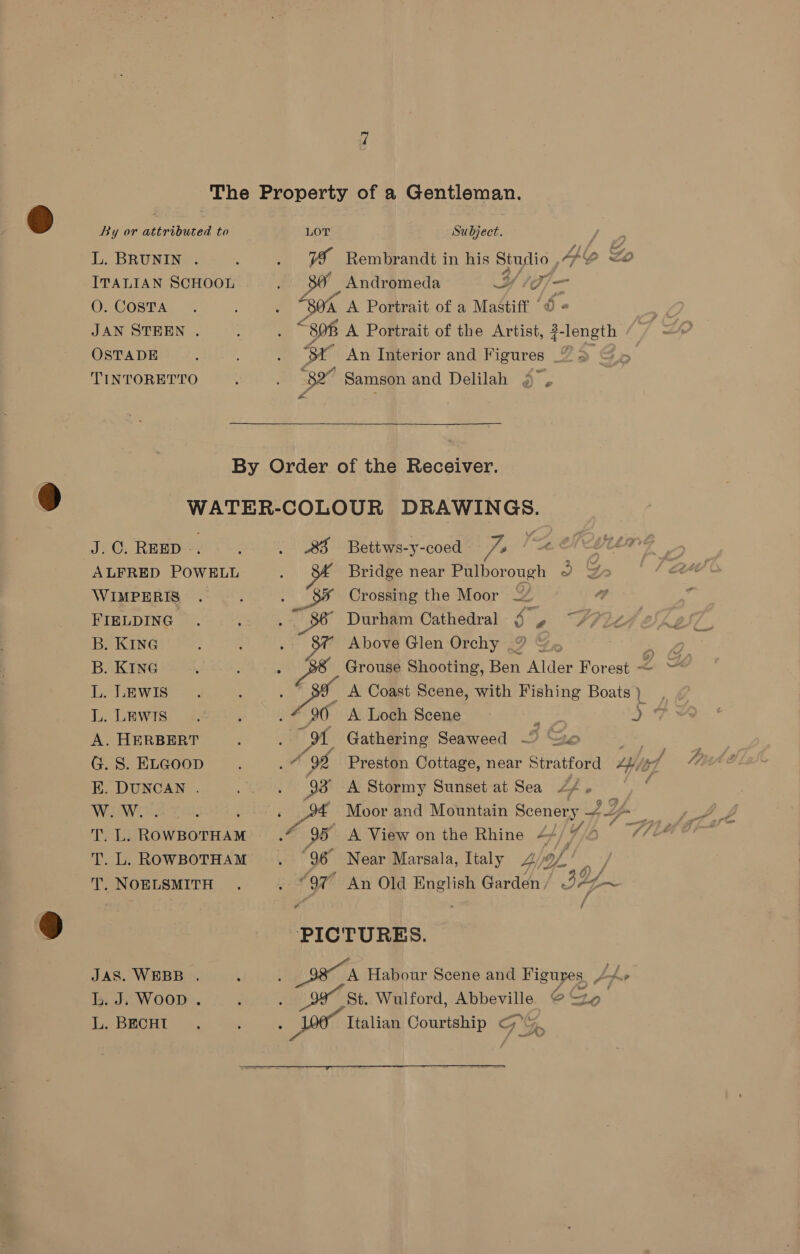 7
The Property of a Gentleman.
By or attributed to LOT Subject.
L. BRUNIN . . . 79 Rembrandt in his Studio
ITALIAN SCHOOL . 80 Andromeda
O. COSTA . . . 80A A Portrait of a Mastiff
JAN STEEN . . . 80B A Portrait of the Artist, ¾-length
OSTADE . . . 81 An Interior and Figures
TINTORETTO . . 82 Samson and Delilah
By Order of the Receiver.
WATER-COLOUR DRAWINGS.
J. C. REED . . . 83 Bettws-y-coed
ALFRED POWELL . 84 Bridge near Pulborough
WIMPERIS . . . 85 Crossing the Moor
FIELDING . . . 86 Durham Cathedral
B. KING . . . 87 Above Glen Orchy
B. KING . . . 88 Grouse Shooting, Ben Alder Forest
L. LEWIS . . . 89 A Coast Scene, with Fishing Boats }
L. LEWIS . . . 90 A Loch Scene }
A. HERBERT . . 91 Gathering Seaweed
G. S. ELGOOD . . 92 Preston Cottage, near Stratford
E. DUNCAN . . . 93 A Stormy Sunset at Sea
W. W. . . . 94 Moor and Mountain Scenery
T. L. ROWBOTHAM . 95 A View on the Rhine
T. L. ROWBOTHAM . 96 Near Marsala, Italy
T. NOELSMITH . . 97 An Old English Garden
PICTURES.
JAS. WEBB . . . 98 A Habour Scene and Figures
L. J. WOOD . . . 99 St. Wulford, Abbeville
L. BECHI . . . 100 Italian Courtship